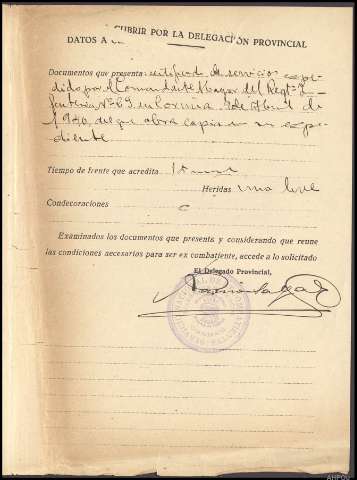 DATOS A CUBRIR POR LA DELEGACIÓN PROVINCIAL
Documentos que presenta: certificado de servicios expe-
dido por el Comandante Mayor del Regtº
Infantería, Nº 69, en Coruña, de Abril de
1940, del que obra copia en su expe-
diente
Tiempo de frente que acredita
Heridas una leve
Condecoraciones
Examinados los documentos que presenta y considerando que reune
las condiciones necesarias para ser ex combatiente, accede a lo solicitado
El Delegado Provincial,
AHPOU